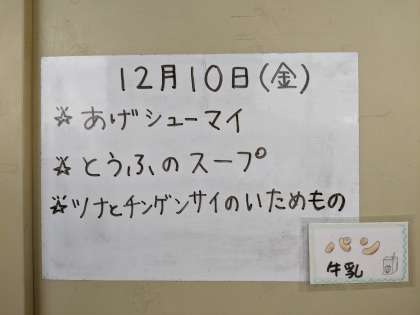 12月10日(金)
☆あげシューマイ
☆とうふのスープ
☆ツナとチンゲンサイのいためもの
パン
牛乳